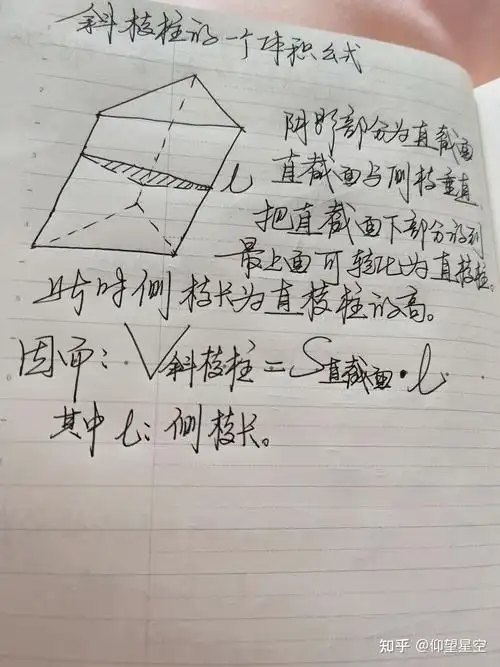 斜棱柱的一个体积公式
阴影部分为直截面
直截面与侧棱垂直,
把直截面下部分放到
最上面可转化为直棱柱。
l
此时侧棱长为直棱柱的高。
因而:V斜棱柱=S直截面·l.
其中l:侧棱长。
知乎 @仰望星空